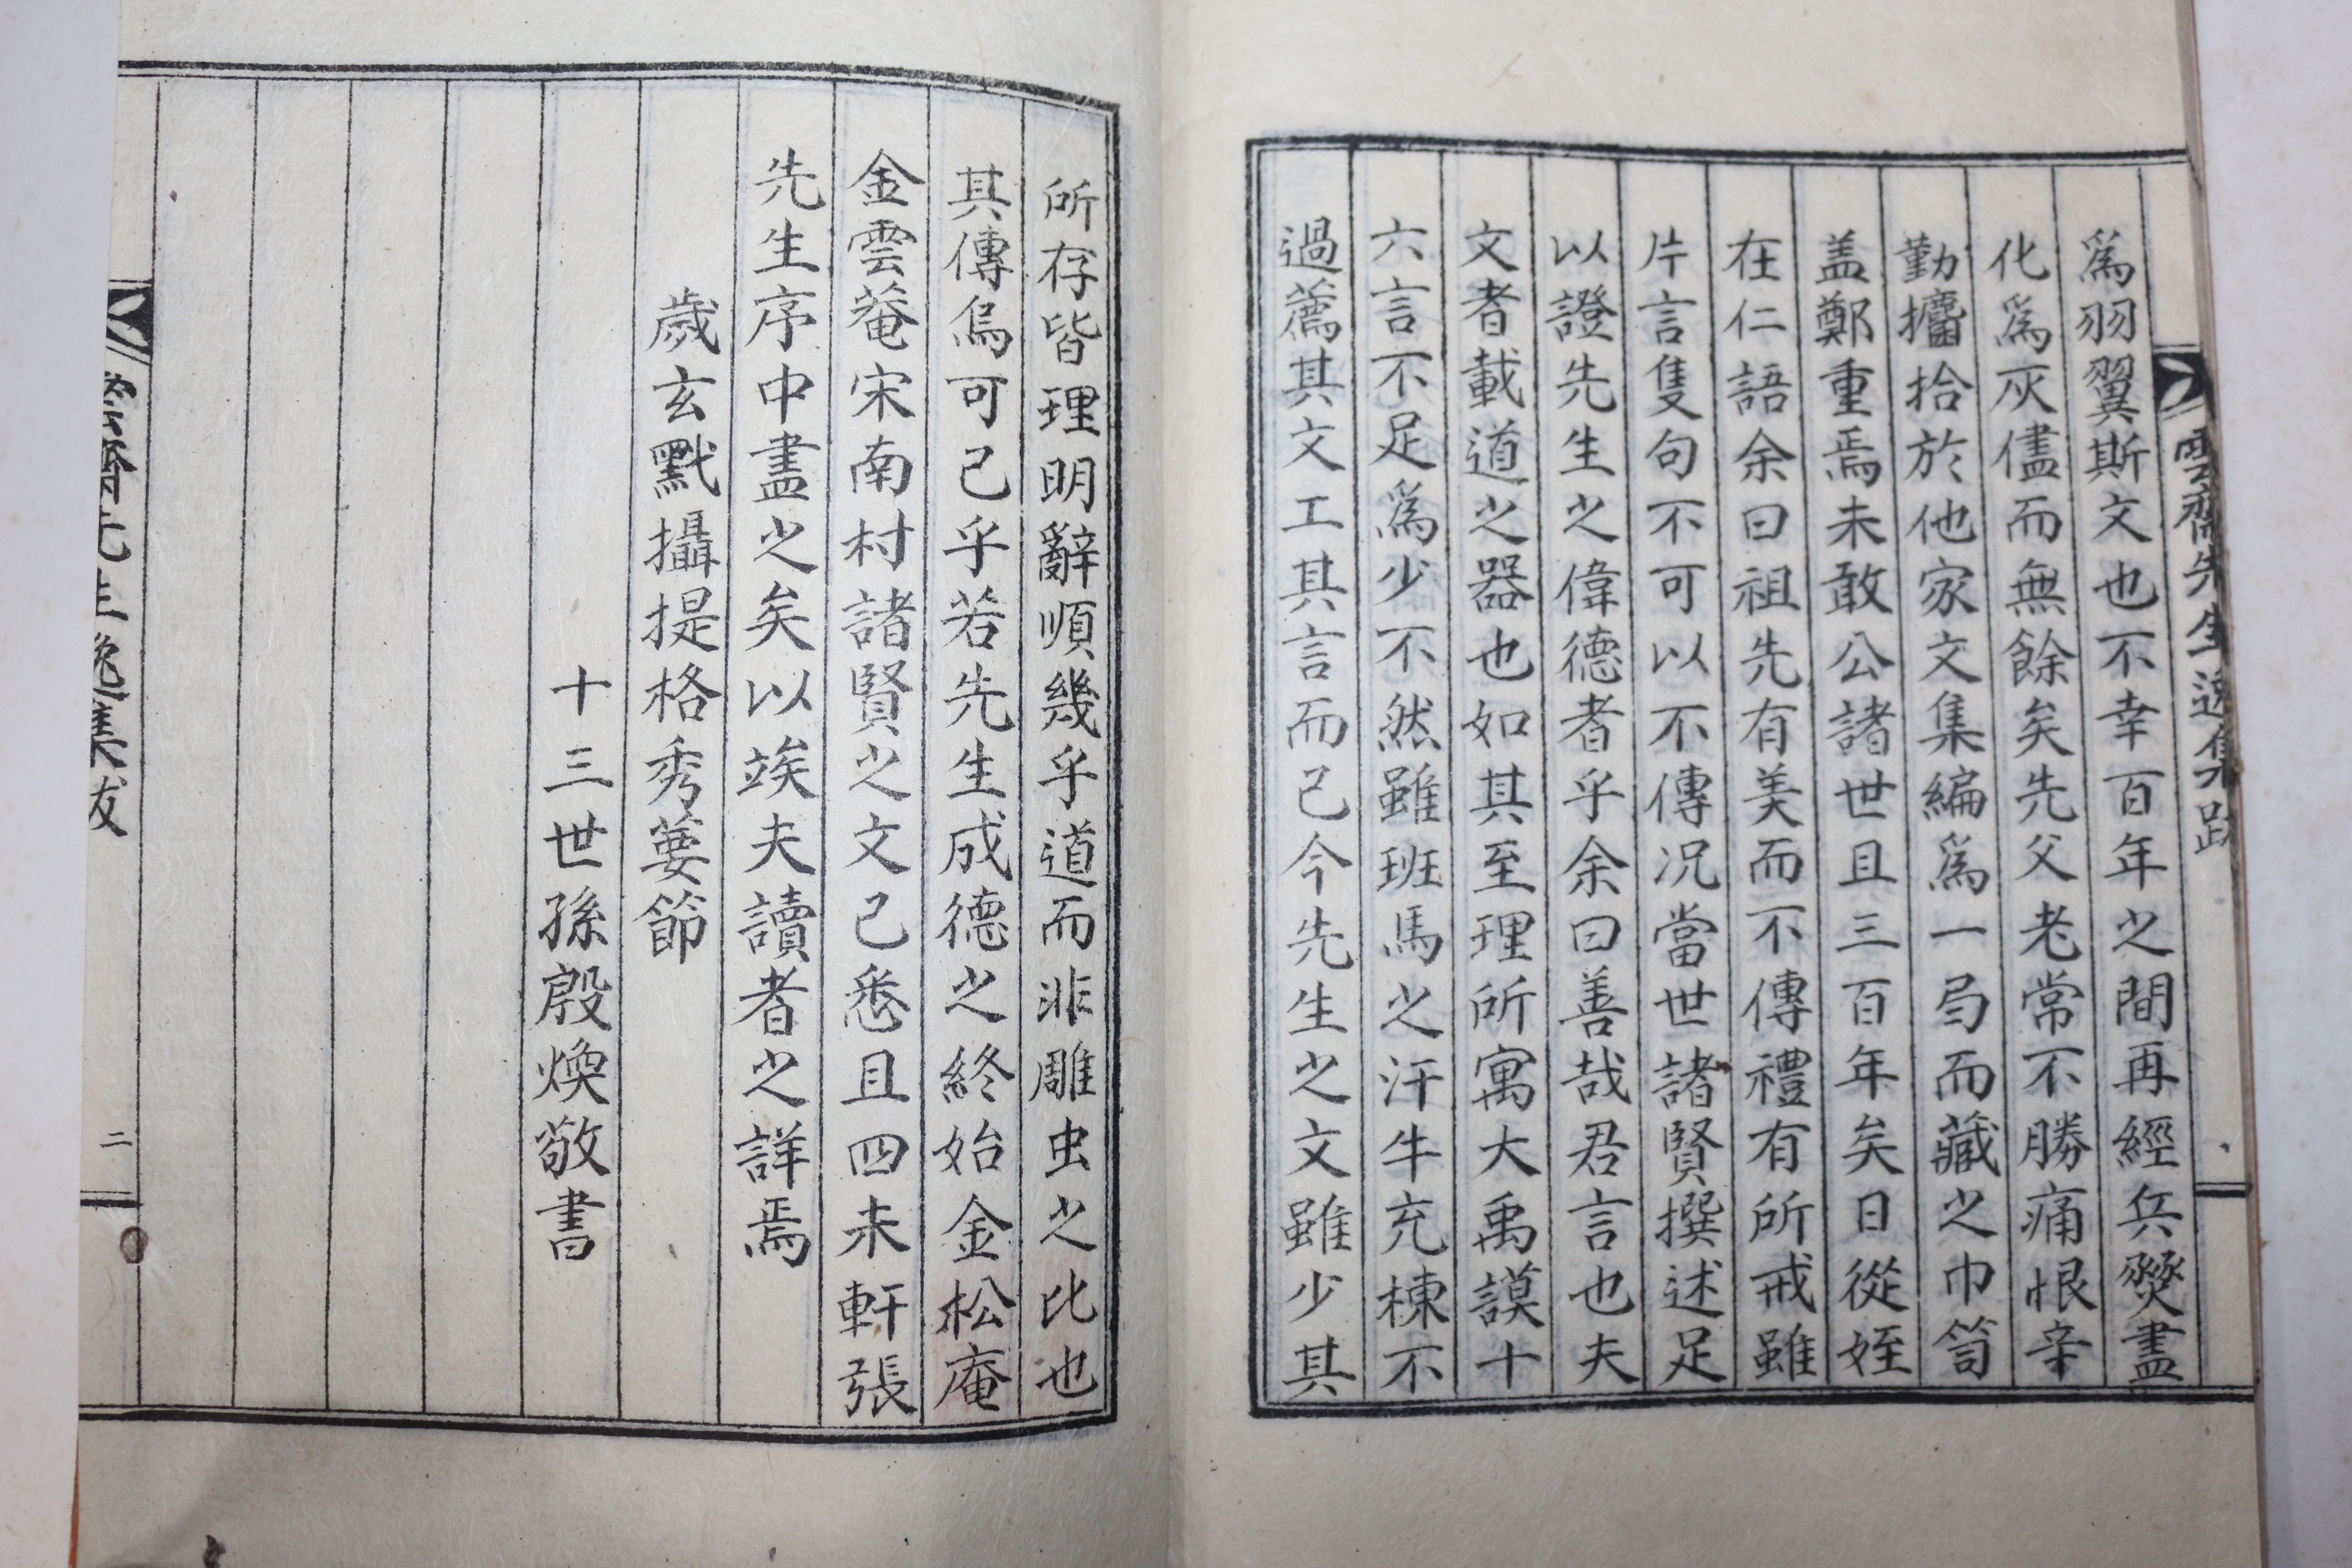 雲齋先生逸集跋
爲羽翼斯文也不幸百年之間再經兵燹盡
化爲灰儘而無餘矣先父老常不勝痛恨辛
勤攟拾於他家文集編爲一局而藏之巾笥
盖鄭重焉未敢公諸世且三百年矣日從姪
在仁語余曰祖先有美而不傳禮有所戒雖
片言隻句不可以不傳况當世諸賢撰述足
以證先生之偉德者乎余曰善哉君言也夫
文者載道之器也如其至理所寓大禹謨十
六言不足爲少不然雖班馬之汗牛充棟不
過薦其文工其言而己今先生之文雖少其
所存皆理明辭順幾乎道而非雕虫之比也
其傳烏可己乎若先生成德之終始金松庵
金雲菴宋南村諸賢之文己悉且四未軒張
先生序中盡之矣以竢夫讀者之詳焉
歲玄黓攝提格秀葽節
十三世孫殷煥敬書
齋先生逸集跋
二